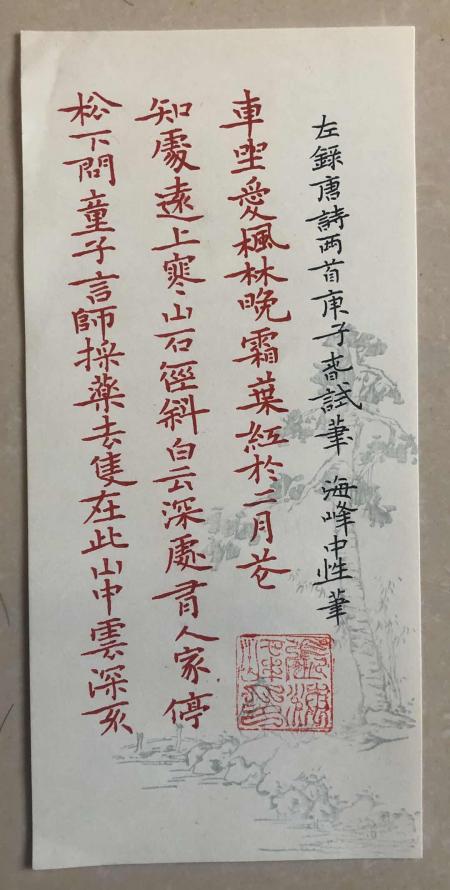 松下問童子言師採藥去隻在此山中雲深不
知處遠上寒山石徑斜白云深處有人家停
車坐愛楓林晚霜葉紅於二月花
左錄唐詩兩首庚子春試筆 海峰中性筆